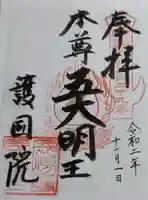 奉拝
令和二年
十一月一日
本尊
五大明王
護国院